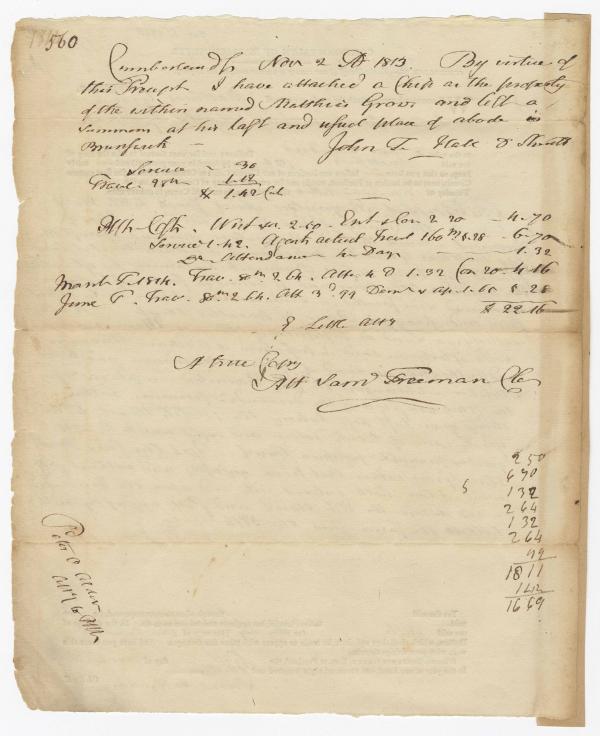 560
Cumberland ss Nov 2 AD 1813. By virtue of
this Precept I have attached a Chip as the property
of the within named Matthew Grows and left a
Summons at his last and usual place of abode in
Brunswick —
John T. Hall D Sheriff
Service - 30
Travel. 28m 1.12
$ 1.42
Plffs Costs. Writ &c. 2.50. Ent & Con 2 20 - 4.70
Service 1.42. Agents actual Travel 160 m 5.28 - 6.70
Do Attendance 4 Days - 1.32
March T. 1814. Trav. 80m 2.64. Att. 4 D 1.32 Con 20 - 4.16
June T. Trav. 80m 2.64. Att 3d. 99
$ 22.16
E Little Atty
A true Copy
Att Saml Freeman Cle
2 50
6 70
1 32
2 64
1 32
2 64
99
18 11
1 42
16 69
Peter O Alden
Atty to Plffs